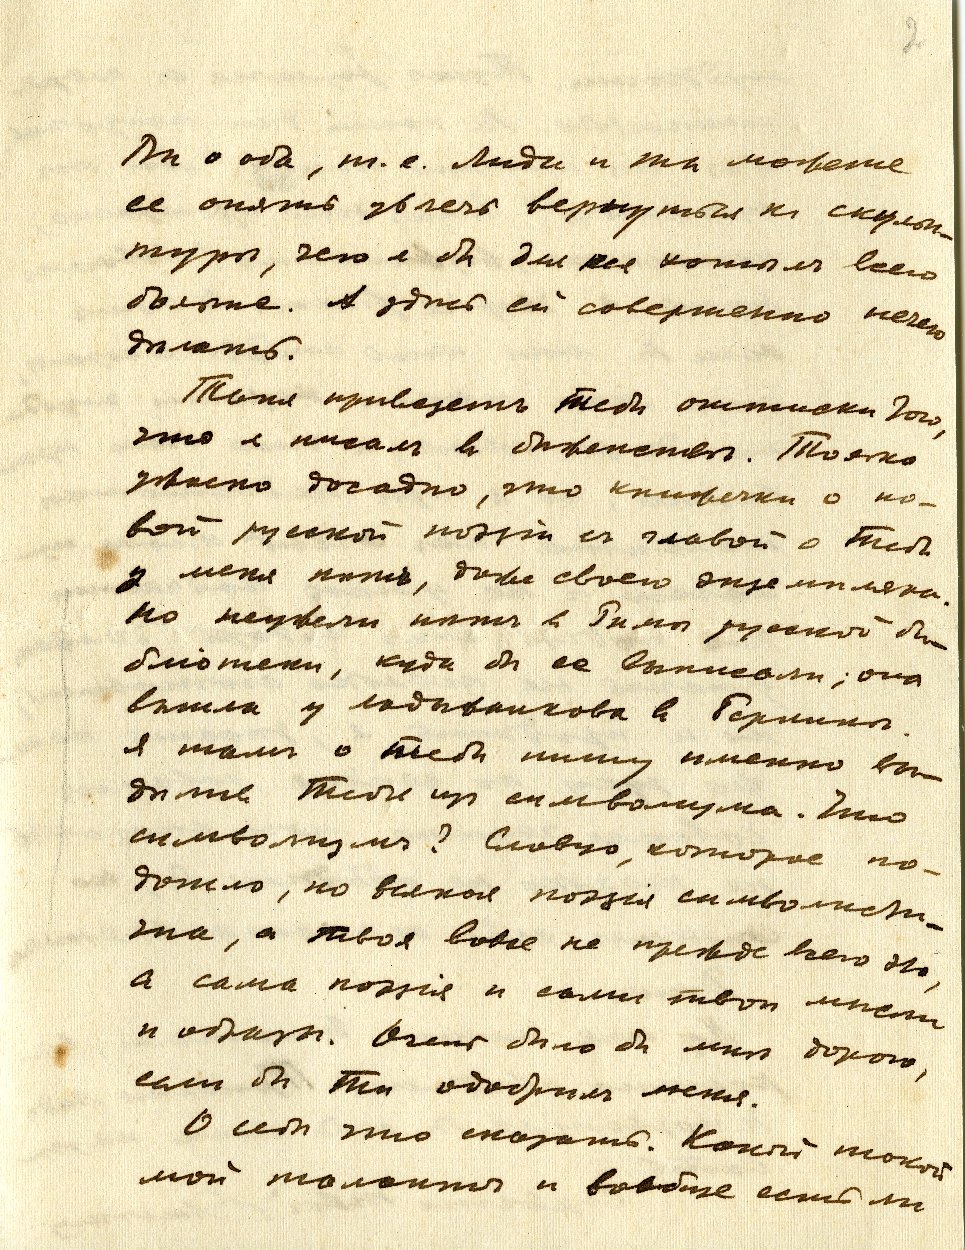 2
Вы о оба, т. е. Лидия и ты можете
ее опять увлечь вернуться къ скульп-
туре, чего я бы для нея хотелъ всего
больше. А здесь ей совершенно нечего
делать.
Таня привезетъ Тебе оттиски того,
что я писалъ в беженстве. Только
ужасно досадно, что книжечки о но-
вой русской поэзiи съ главой о Тебе
у меня нетъ, даже своего экземпляра.
Но неужели нетъ в Риме русской би-
блiотеки, куда бы ее выписали; она
вышла у Ладыжникова в Берлине.
Я тамъ о Тебе пишу именно вы-
деляя Тебя из символизма. Что
символизмъ? Словцо, которое по-
дошло, но всякая поэзiя символистич-
на, а твоя вовсе не прежде всего это,
а сама поэзiя и сами твои мысли
и образы. Очень было бы мне дорого,
если бы Ты одобрилъ меня.
О себе что сказать. Какой такой
мой талантъ и вообще есть ли